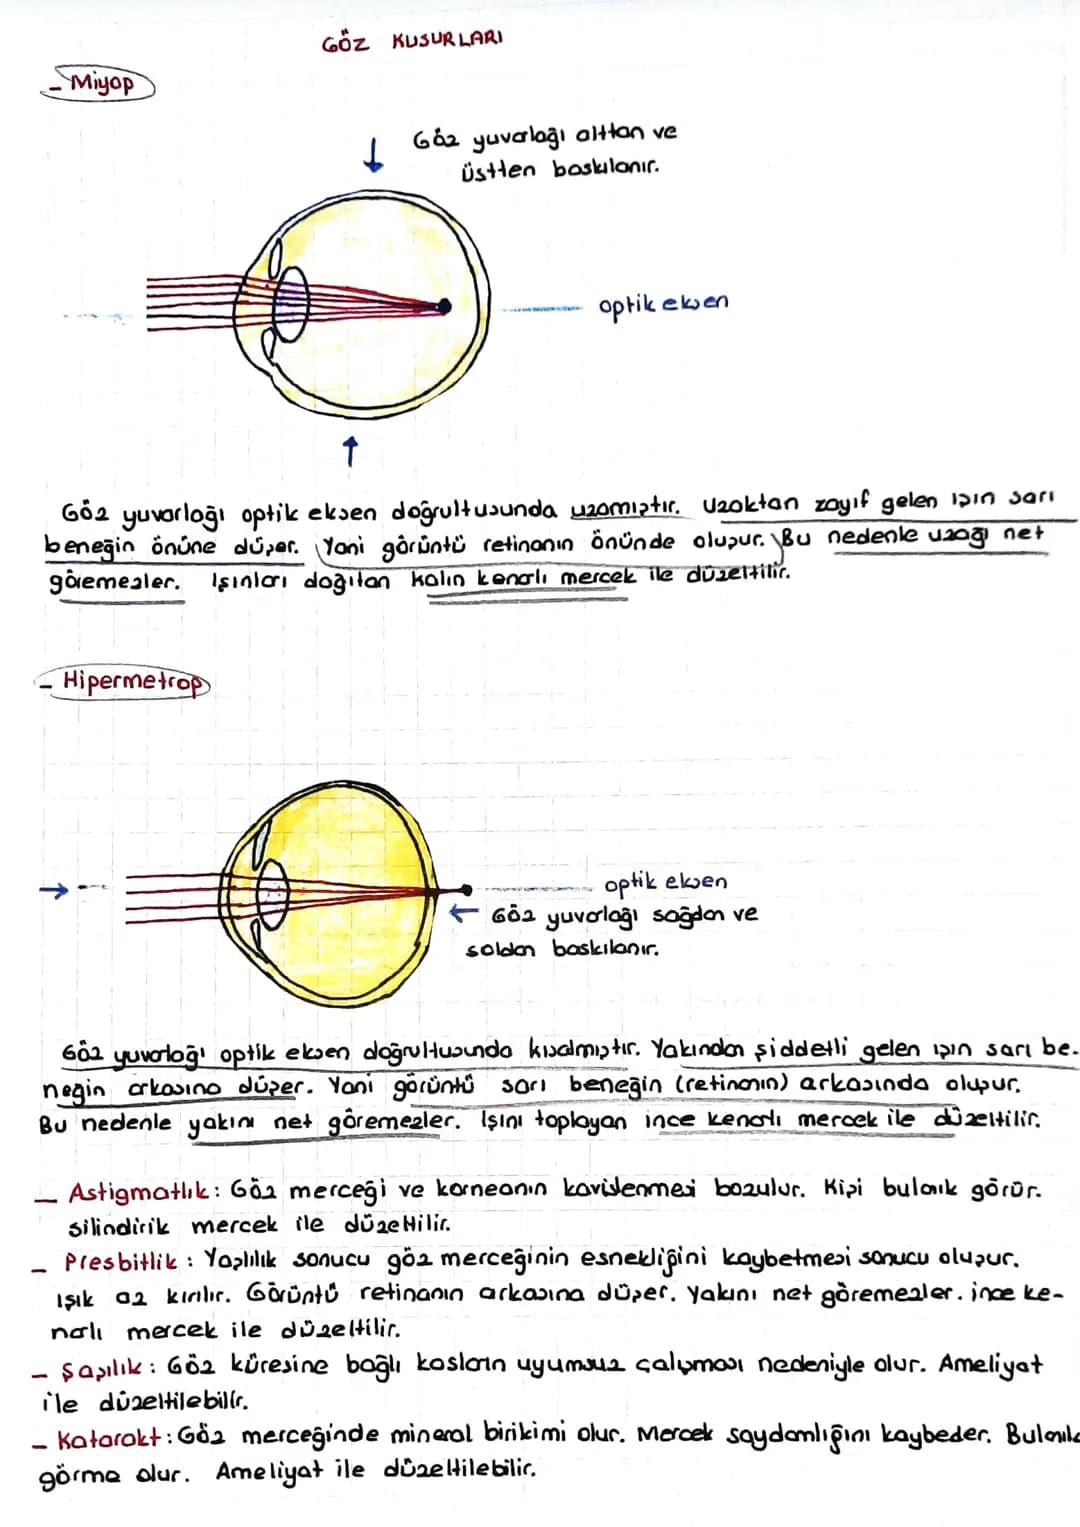 GÖZ KUSURLARI
- Miyop
Göz yuvarlağı alttan ve
üstten baskılanır.
optik eksen
Göz yuvarlağı optik eksen doğrultusunda uzamıştır. Uzaktan zayıf gelen ışın sarı
beneğin önüne düşer. Yani görüntü retinanın önünde oluşur. Bu nedenle uzağı net
göremezler. Işınları dağıtan kalın kenarlı mercek ile düzeltilir.
- Hipermetrop
optik eksen
Göz yuvarlağı sağdan ve
soldan baskılanır.
Göz yuvarlağı optik eksen doğrultusunda kısalmıştır. Yakından şiddetli gelen ışın sarı be-
neğin arkasına düşer. Yani görüntü sarı beneğin (retinanın) arkasında oluşur.
Bu nedenle yakını net göremezler. Işını toplayan ince kenarlı mercek ile düzeltilir.
- Astigmatlık: Göz merceği ve korneanın kavislenmesi bozulur. Kişi bulanık görür.
silindirik mercek ile düzeltilir.
- Presbitlik: Yaşlılık sonucu göz merceğinin esnekliğini kaybetmesi sonucu oluşur.
Işık az kırılır. Görüntü retinanın arkasına düşer. Yakını net göremezler. ince ke-
narlı mercek ile düzeltilir.
- Şaşılık: Göz küresine bağlı kasların uyumsuz çalışması nedeniyle olur. Ameliyat
ile düzeltilebilir.
- Katarakt: Göz merceğinde mineral birikimi olur. Mercek saydamlığını kaybeder. Bulanık
görme olur. Ameliyat ile düzeltilebilir.